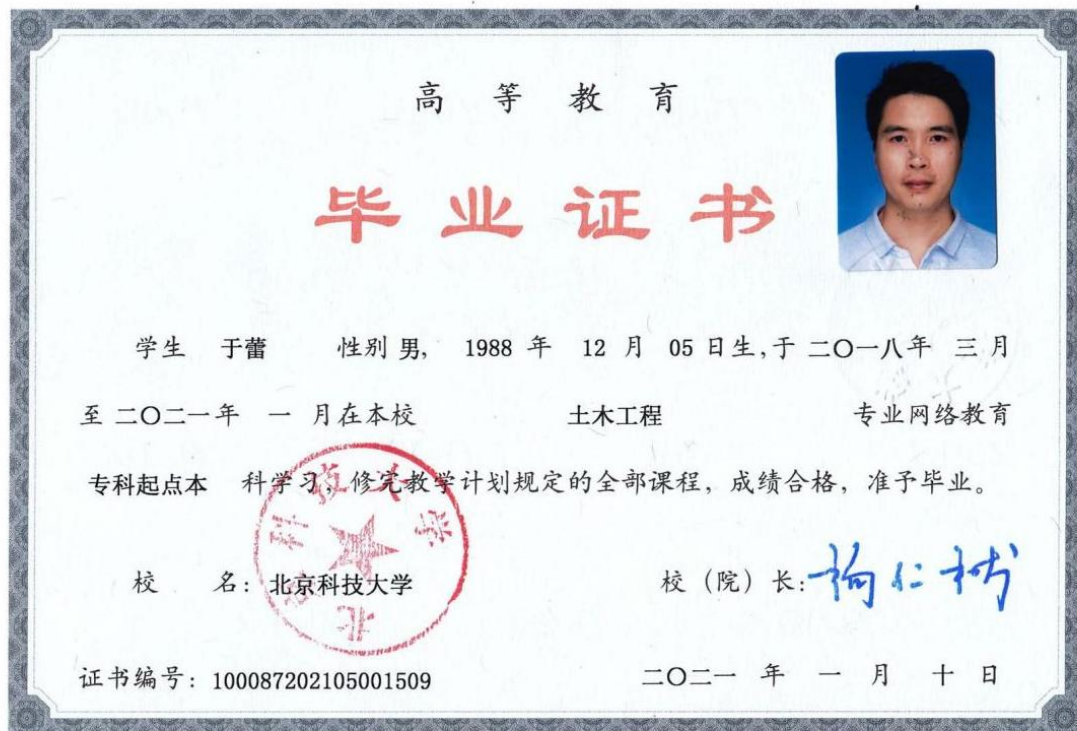 高等教育
毕业证书
学生 于蕾 性别 男, 1988 年 12 月 05 日生,于 二〇一八年 三月
至 二〇二一年 一 月在本校 土木工程 专业网络教育
专科起点本 科学习,修完教学计划规定的全部课程,成绩合格,准予毕业。
北京科技大学
校 名:北京科技大学 校(院)长:杨仁树
证书编号:100087202105001509 二〇二一 年 一 月 十 日